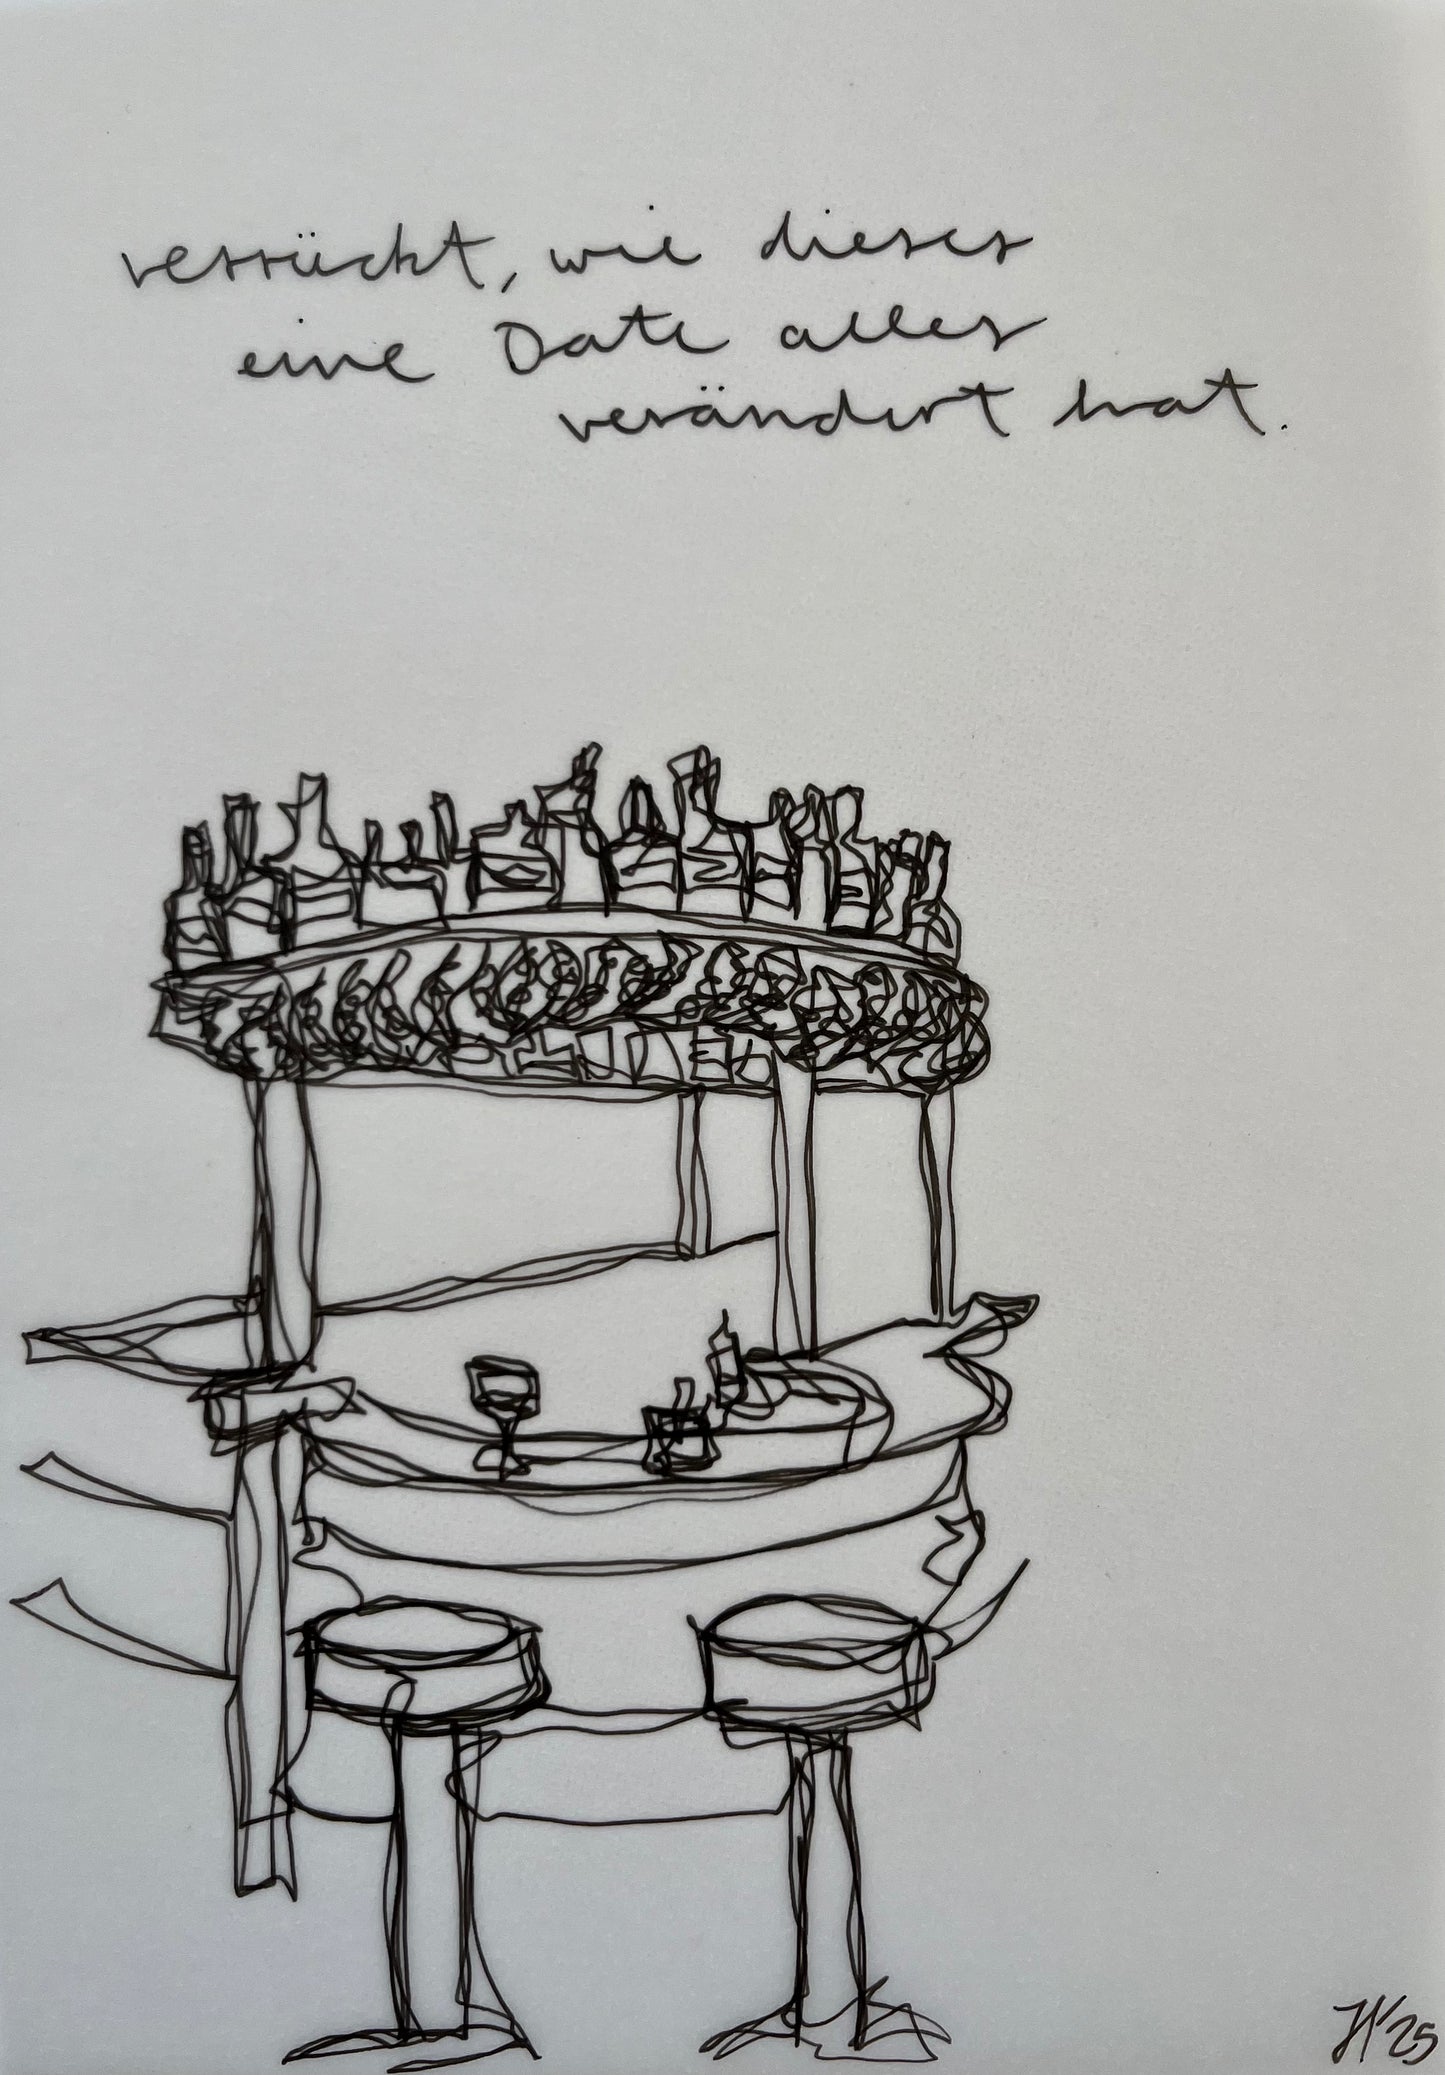 verrückt, wie dieses
eine Date alles
verändert hat.
'25